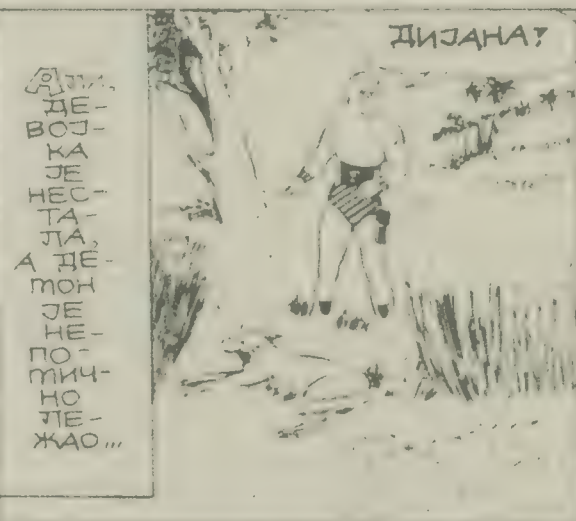 АЛИ,
ДЕ-
ВОЈ-
КА
ЈЕ
НЕС-
ТА-
ЛА,
А ДЕ-
МОН
ЈЕ
НЕ-
ПО-
МИЧ-
НО
ЛЕ-
ЖАО...
ДИЈАНА?